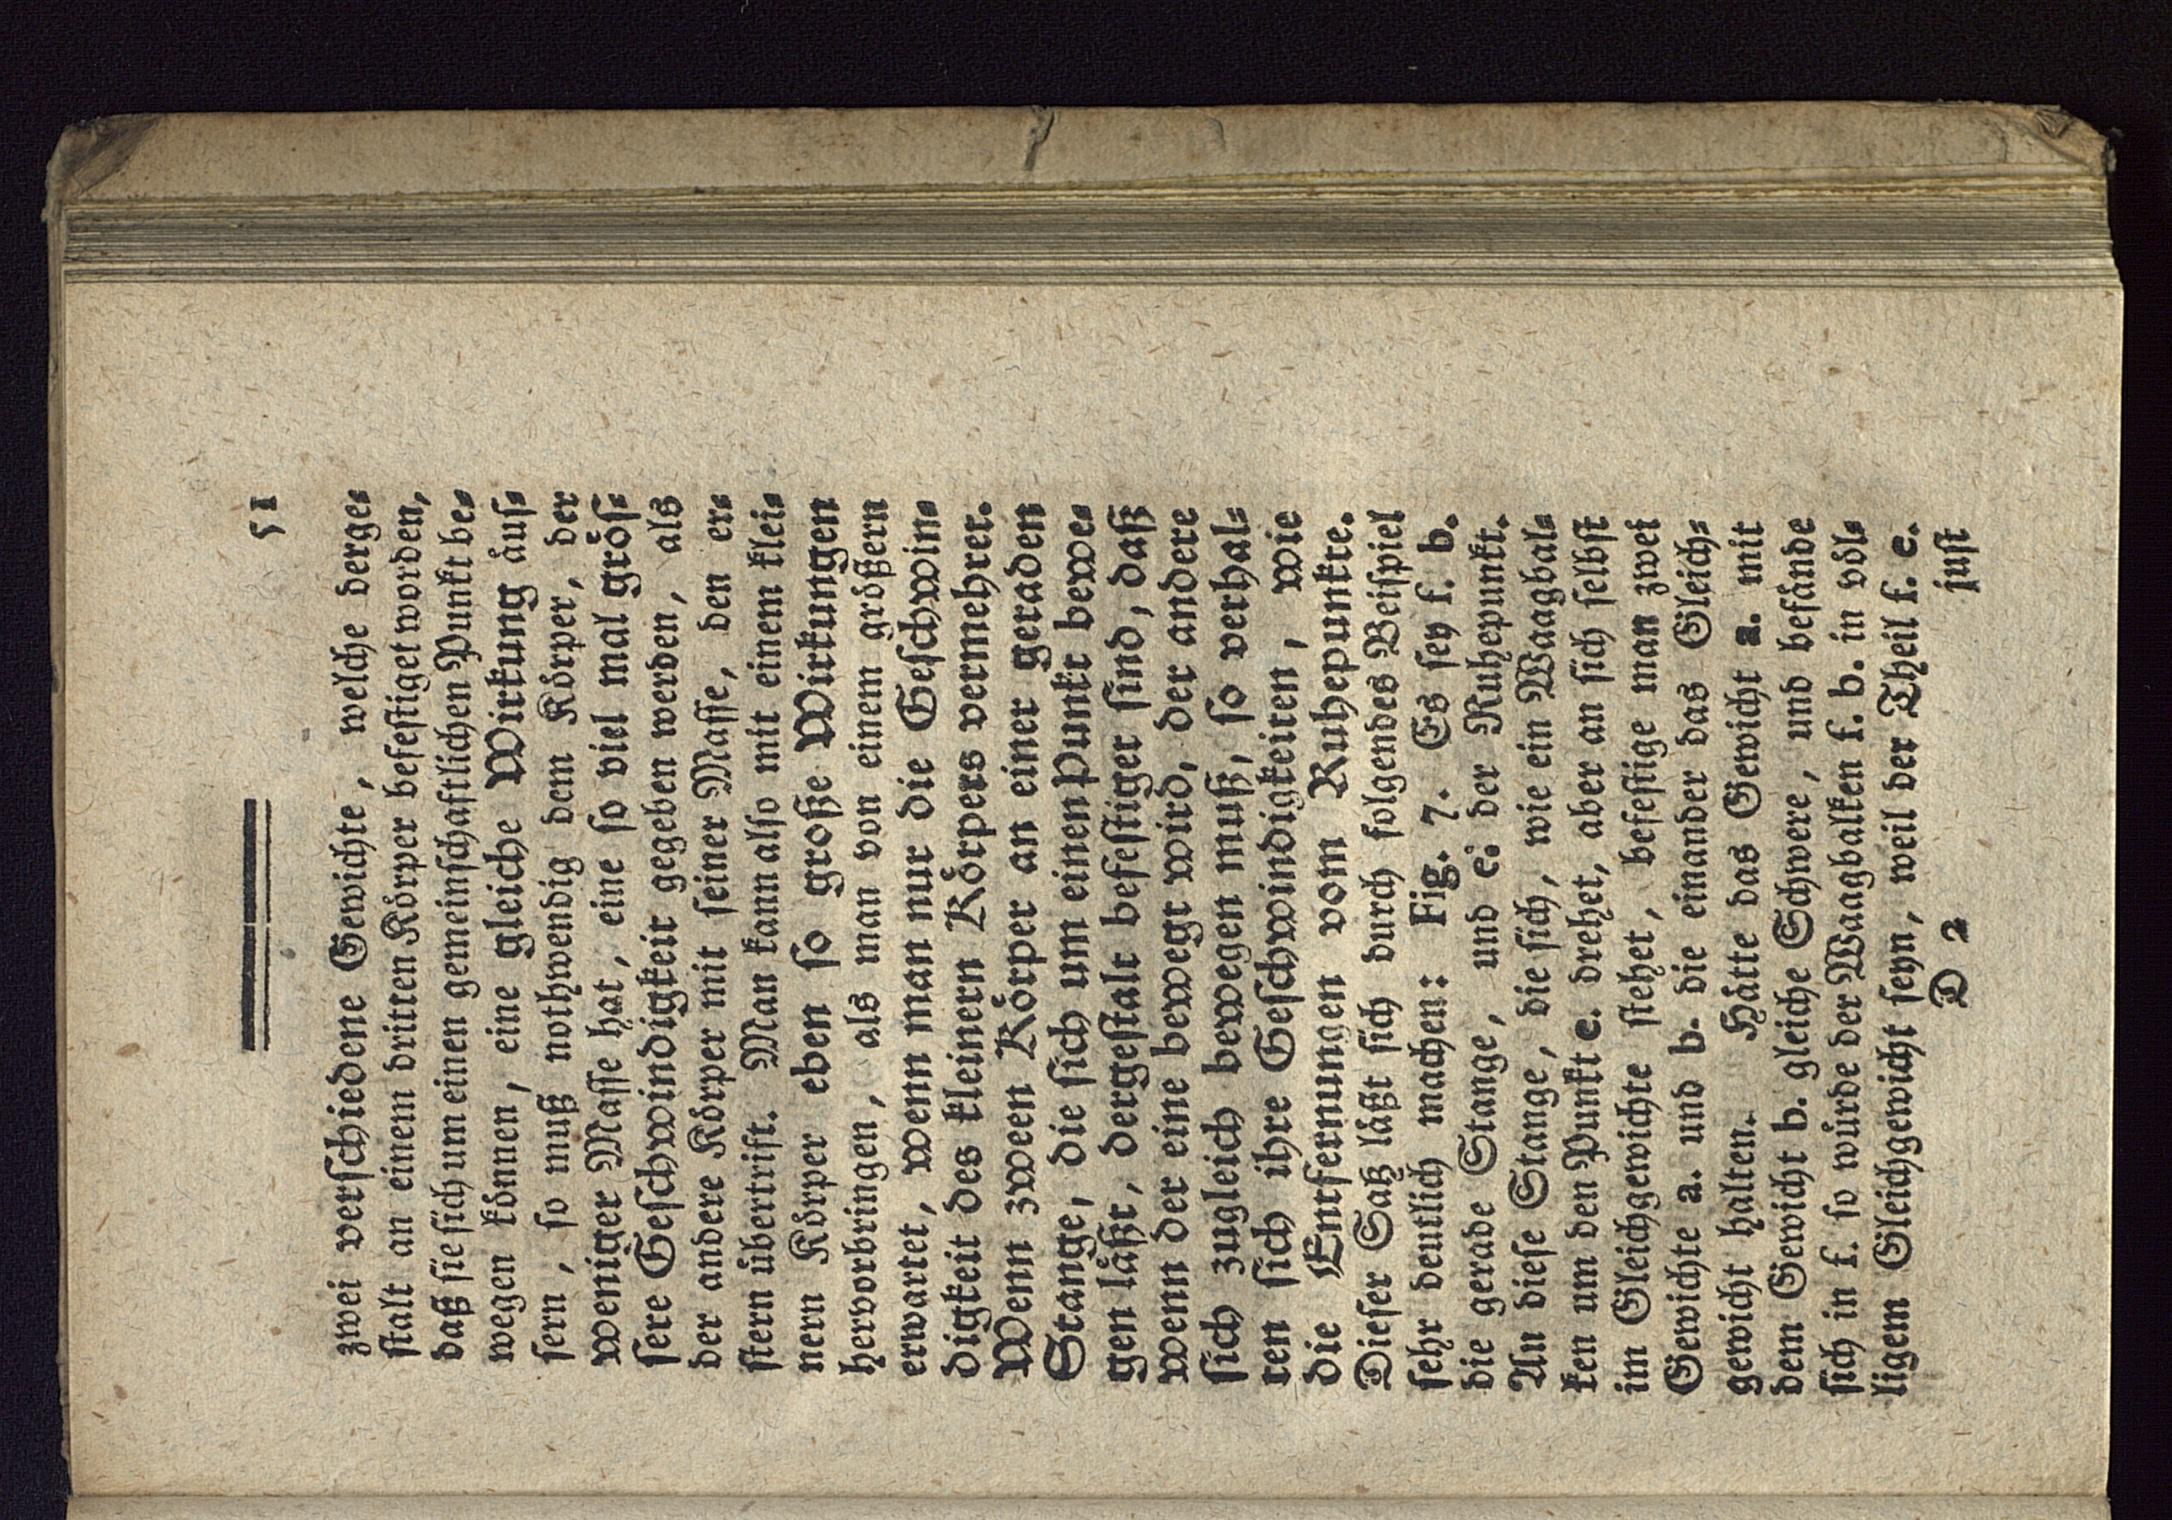 51
zwei verſchiedene Gewichte, welche derge⸗
ſtalt an einem dritten Koͤrper befeſtiget worden,
daß ſie ſich um einen gemeinſchaftlichen Punkt be⸗
wegen koͤnnen, eine gleiche Wirkung aͤuſ⸗
ſern, ſo muß nothwendig dem Koͤrper, der
weniger Maſſe hat, eine ſo viel mal groͤſ⸗
ſere Geſchwindigkeit gegeben werden, als
der andere Koͤrper mit ſeiner Maſſe, den er⸗
ſtern uͤbertrift. Man kann alſo mit einem klei⸗
nern Koͤrper eben ſo große Wirkungen
hervorbringen, als man von einem groͤßern
erwartet, wenn man nur die Geſchwin⸗
digkeit des kleinern Koͤrpers vermehret.
Wenn zween Koͤrper an einer geraden
Stange, die ſich um einen Punkt bewe⸗
gen laͤßt, dergeſtalt befeſtiget ſind, daß
wenn der eine bewegt wird, der andere
ſich zugleich bewegen muß, ſo verhal⸗
ten ſich ihre Geſchwindigkeiten, wie
die Entfernungen vom Ruhepunkte.
Dieſer Satz laͤßt ſich durch folgendes Beiſpiel
ſehr deutlich machen: Fig. 7. Es ſey f. b.
die gerade Stange, und c. der Ruhepunkt.
An dieſe Stange, die ſich, wie ein Waagbal⸗
ken um den Punkt c. drehet, aber an ſich ſelbſt
im Gleichgewichte ſtehet, befeſtige man zwei
Gewichte a. und b. die einander das Gleich⸗
gewicht halten. Haͤtte das Gewicht a. mit
dem Gewicht b. gleiche Schwere, und befaͤnde
ſich in f. ſo wuͤrde der Waagbalken f. b. in voͤl⸗
ligem Gleichgewicht ſeyn, weil der Theil f. c.
D 2 juſt